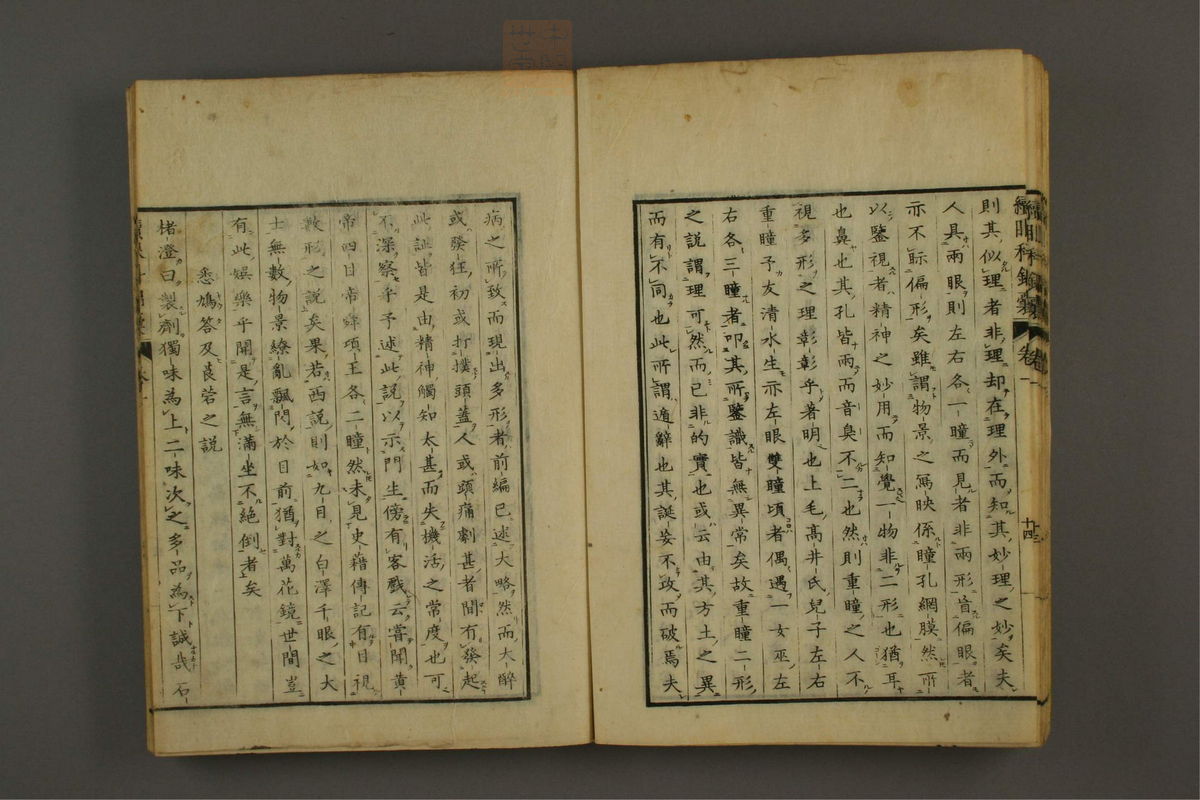 則其似理者非理却在理外而知其妙理之妙矣夫
人具兩眼則左右各一瞳而見者非兩形盲偏眼者
亦不眎偏形矣雖謂物景之寫映係瞳孔網膜然所
以鑒視者精神之妙用而知覺一物非二形也猶耳
也鼻也其孔皆兩而音臭不二也然則重瞳之人不
視多形之理彰彰乎著明也上毛髙井氏兒子左右
重瞳子友清水生亦左眼雙瞳頃者偶遇一女巫左
右各三瞳者叩其所鑒識皆無異常矣故重瞳二形
之説謂理可然而已非的實也或云由其方土之異
而有不同也此所謂遁辭也其誕妄不攻而破焉夫
病之所致而現出多形者前編已述大略然而大醉
或發狂初或打撲頭蓋人或頭痛劇甚者間有發起
此証皆是由精神觸知太甚而失機活之常度也可
不深察乎予述此説以示門生傍有客戲云嘗聞黄
帝四目帝舜項王各二瞳然未見史籍傳記有目視
數形之説矣果若西説則如九目之白澤千眼之大
士無數物景繚亂飄閃於目前猶對萬花鏡世間豈
有此娯樂乎聞是言無滿坐不絶倒者矣
悉鳩答及莨菪之説
楮澄曰製劑獨味為上二味次之多品為下誠哉石